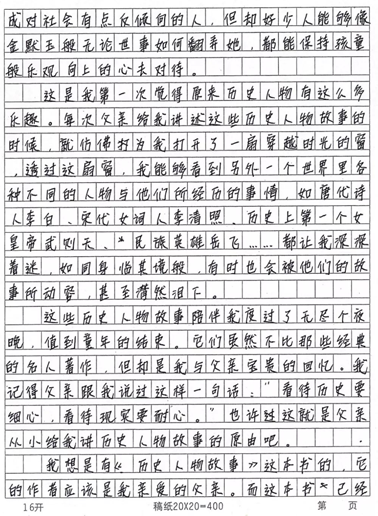 成对社会有点反倾向的人，但却好少人能够像
金默玉般无论世事如何翻弄她，都能保持孩童
般乐观向上的心去对待。
这是我第一次觉得原来历史人物有这么多
乐趣。每次父亲给我讲述这些历史人物故事的
时候，就仿佛打为我打开了一扇穿越时光的窗
，透过这扇窗，我能够看到另外一个世界里各
种不同的人物与他们所经历的事情，如唐代诗
人李白、宋代女词人李清照、历史上第一个女
皇帝武则天、民族英雄岳飞……都让我深深
着迷，如同身临其境般，有时也会被他们的故
事所动容，甚至潸然泪下。
这些历史人物故事陪伴我度过了无尽个夜
晚，值到童年的结束。它们虽然不比那些经典
的名人著作，但却是我与父亲宝贵的回忆。我
记得父亲跟我说过这样一句话：“看待历史要
细心，看待现实要耐心。”也许这就是父亲
从小给我讲历史人物故事的原由吧。
我想是有《历史人物故事》这本书的，它
的作者应该是我亲爱的父亲。而这本书已经
16开 稿纸20X20=400 第 页